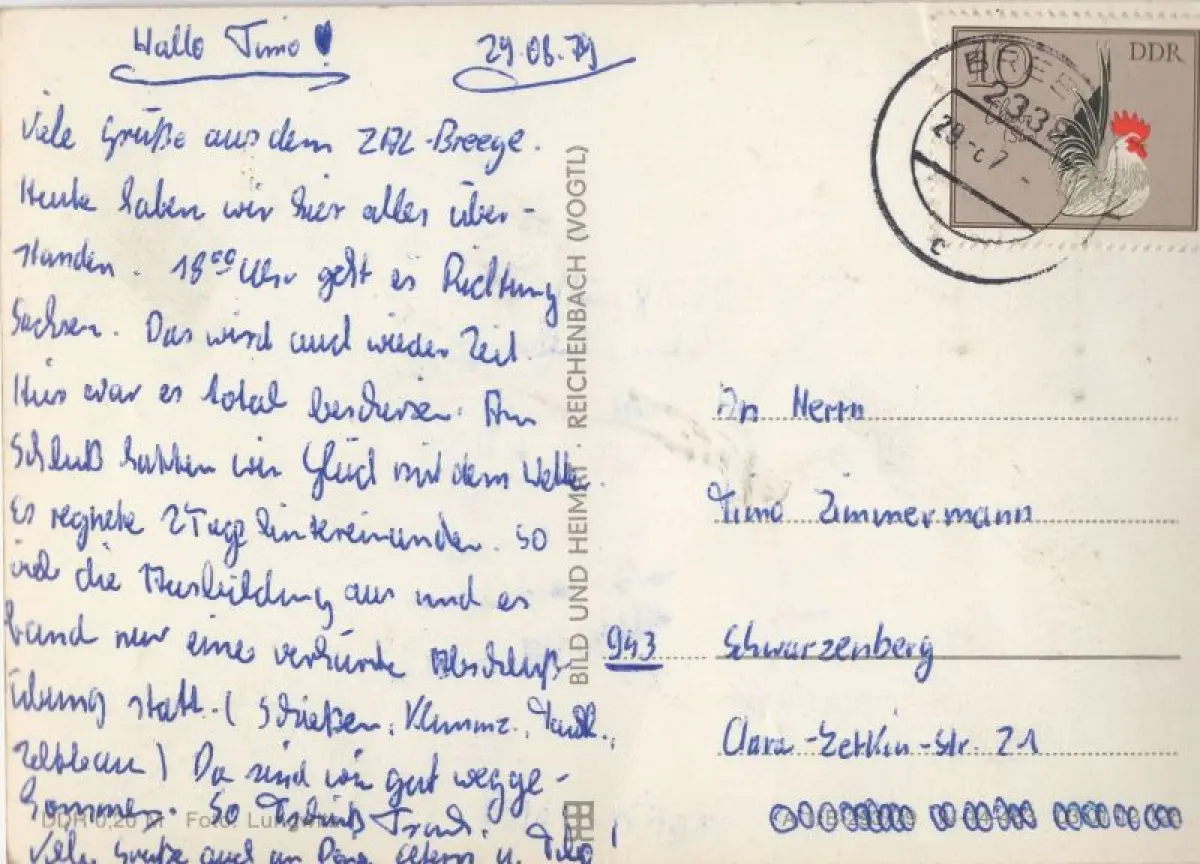 Hallo Timo!
29.08.79
Viele Grüße aus dem ZAL-Breege.
Heute haben wir hier alles über-
standen. 18⁰⁰ Uhr geht es Richtung
Sachsen. Das wird auch wieder Zeit.
Hier war es total beschissen. Am
Schluß hatten wir Glück mit dem Wetter.
Es regnete 2 Tage hintereinander. So
viel die Ausbildung aus und es
fand nur eine verkürzte Abschluß-
übung statt. (Schießen,
Zeltbau) Da sind wir gut wegge-
kommen. So Tschüß
Viele Grüße auch an Eltern u.
DDR 0,20 M Foto:
BILD UND HEIMAT · REICHENBACH (VOGTL)
10
DDR
BREEGE
2338
c
An Herrn
Timo Zimmermann
943 Schwarzenberg
Clara-Zetkin-Str. 21